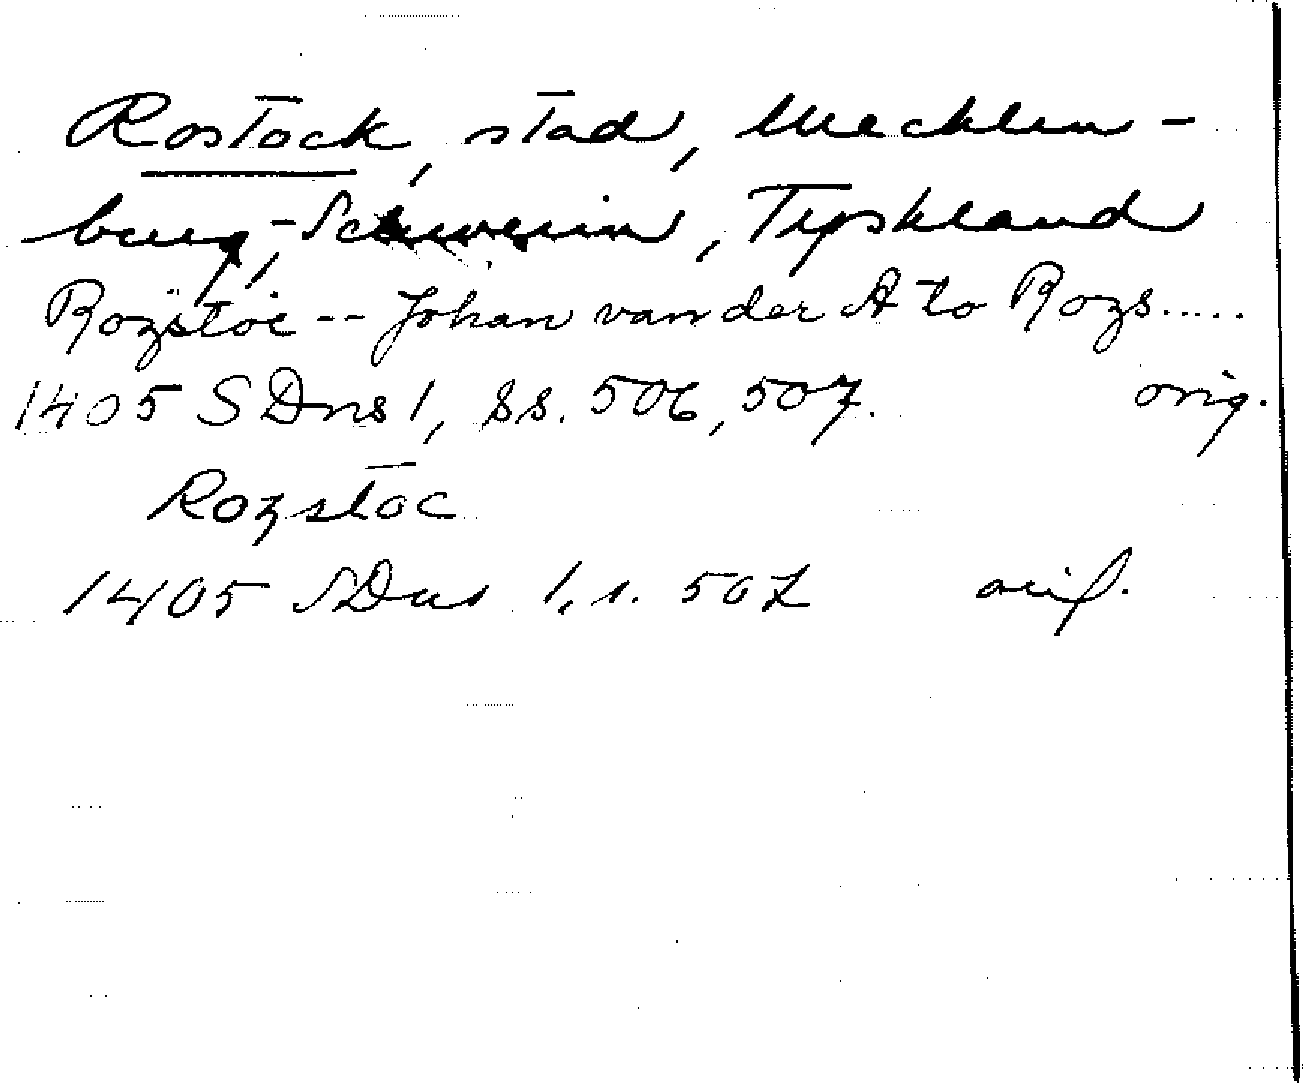 Rostock, stad, Mecklen-
burg,-Schwerin, Tyskland
Rozstoc -- Johan van der A to Rozs.....
1405 SDns 1, ss. 506, 507. orig.
Rozstoc
1405 SDns 1, s. 507 orig.